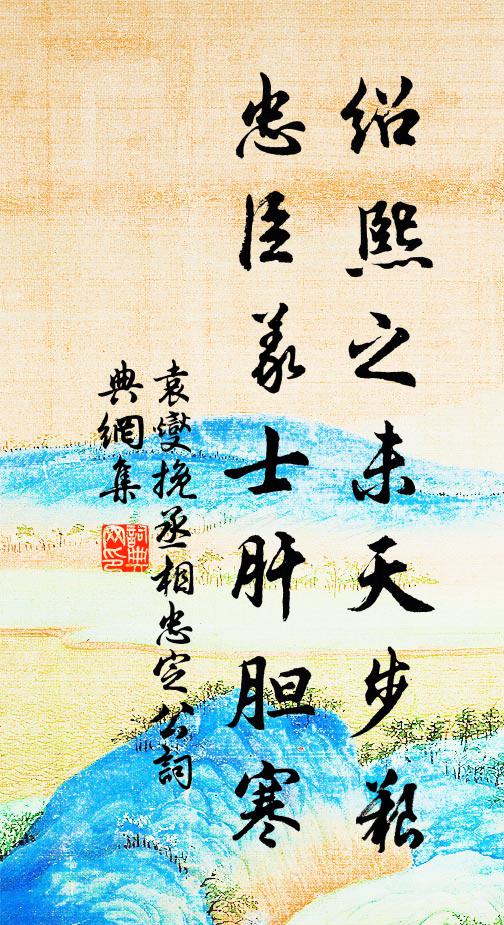 绍熙之末天步艰
忠臣义士肝胆寒
袁燮挽丞相忠定公詞
典網集